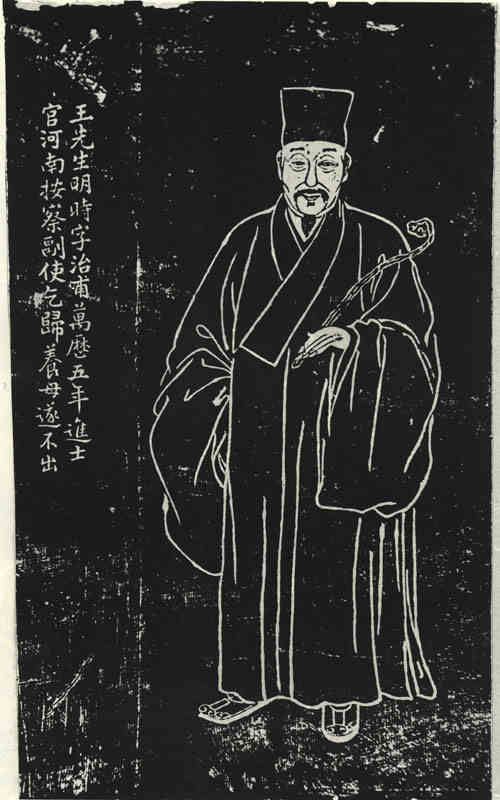 王先生明時字治甫萬歷五年進士
官河南按察副使乞歸養母遂不出